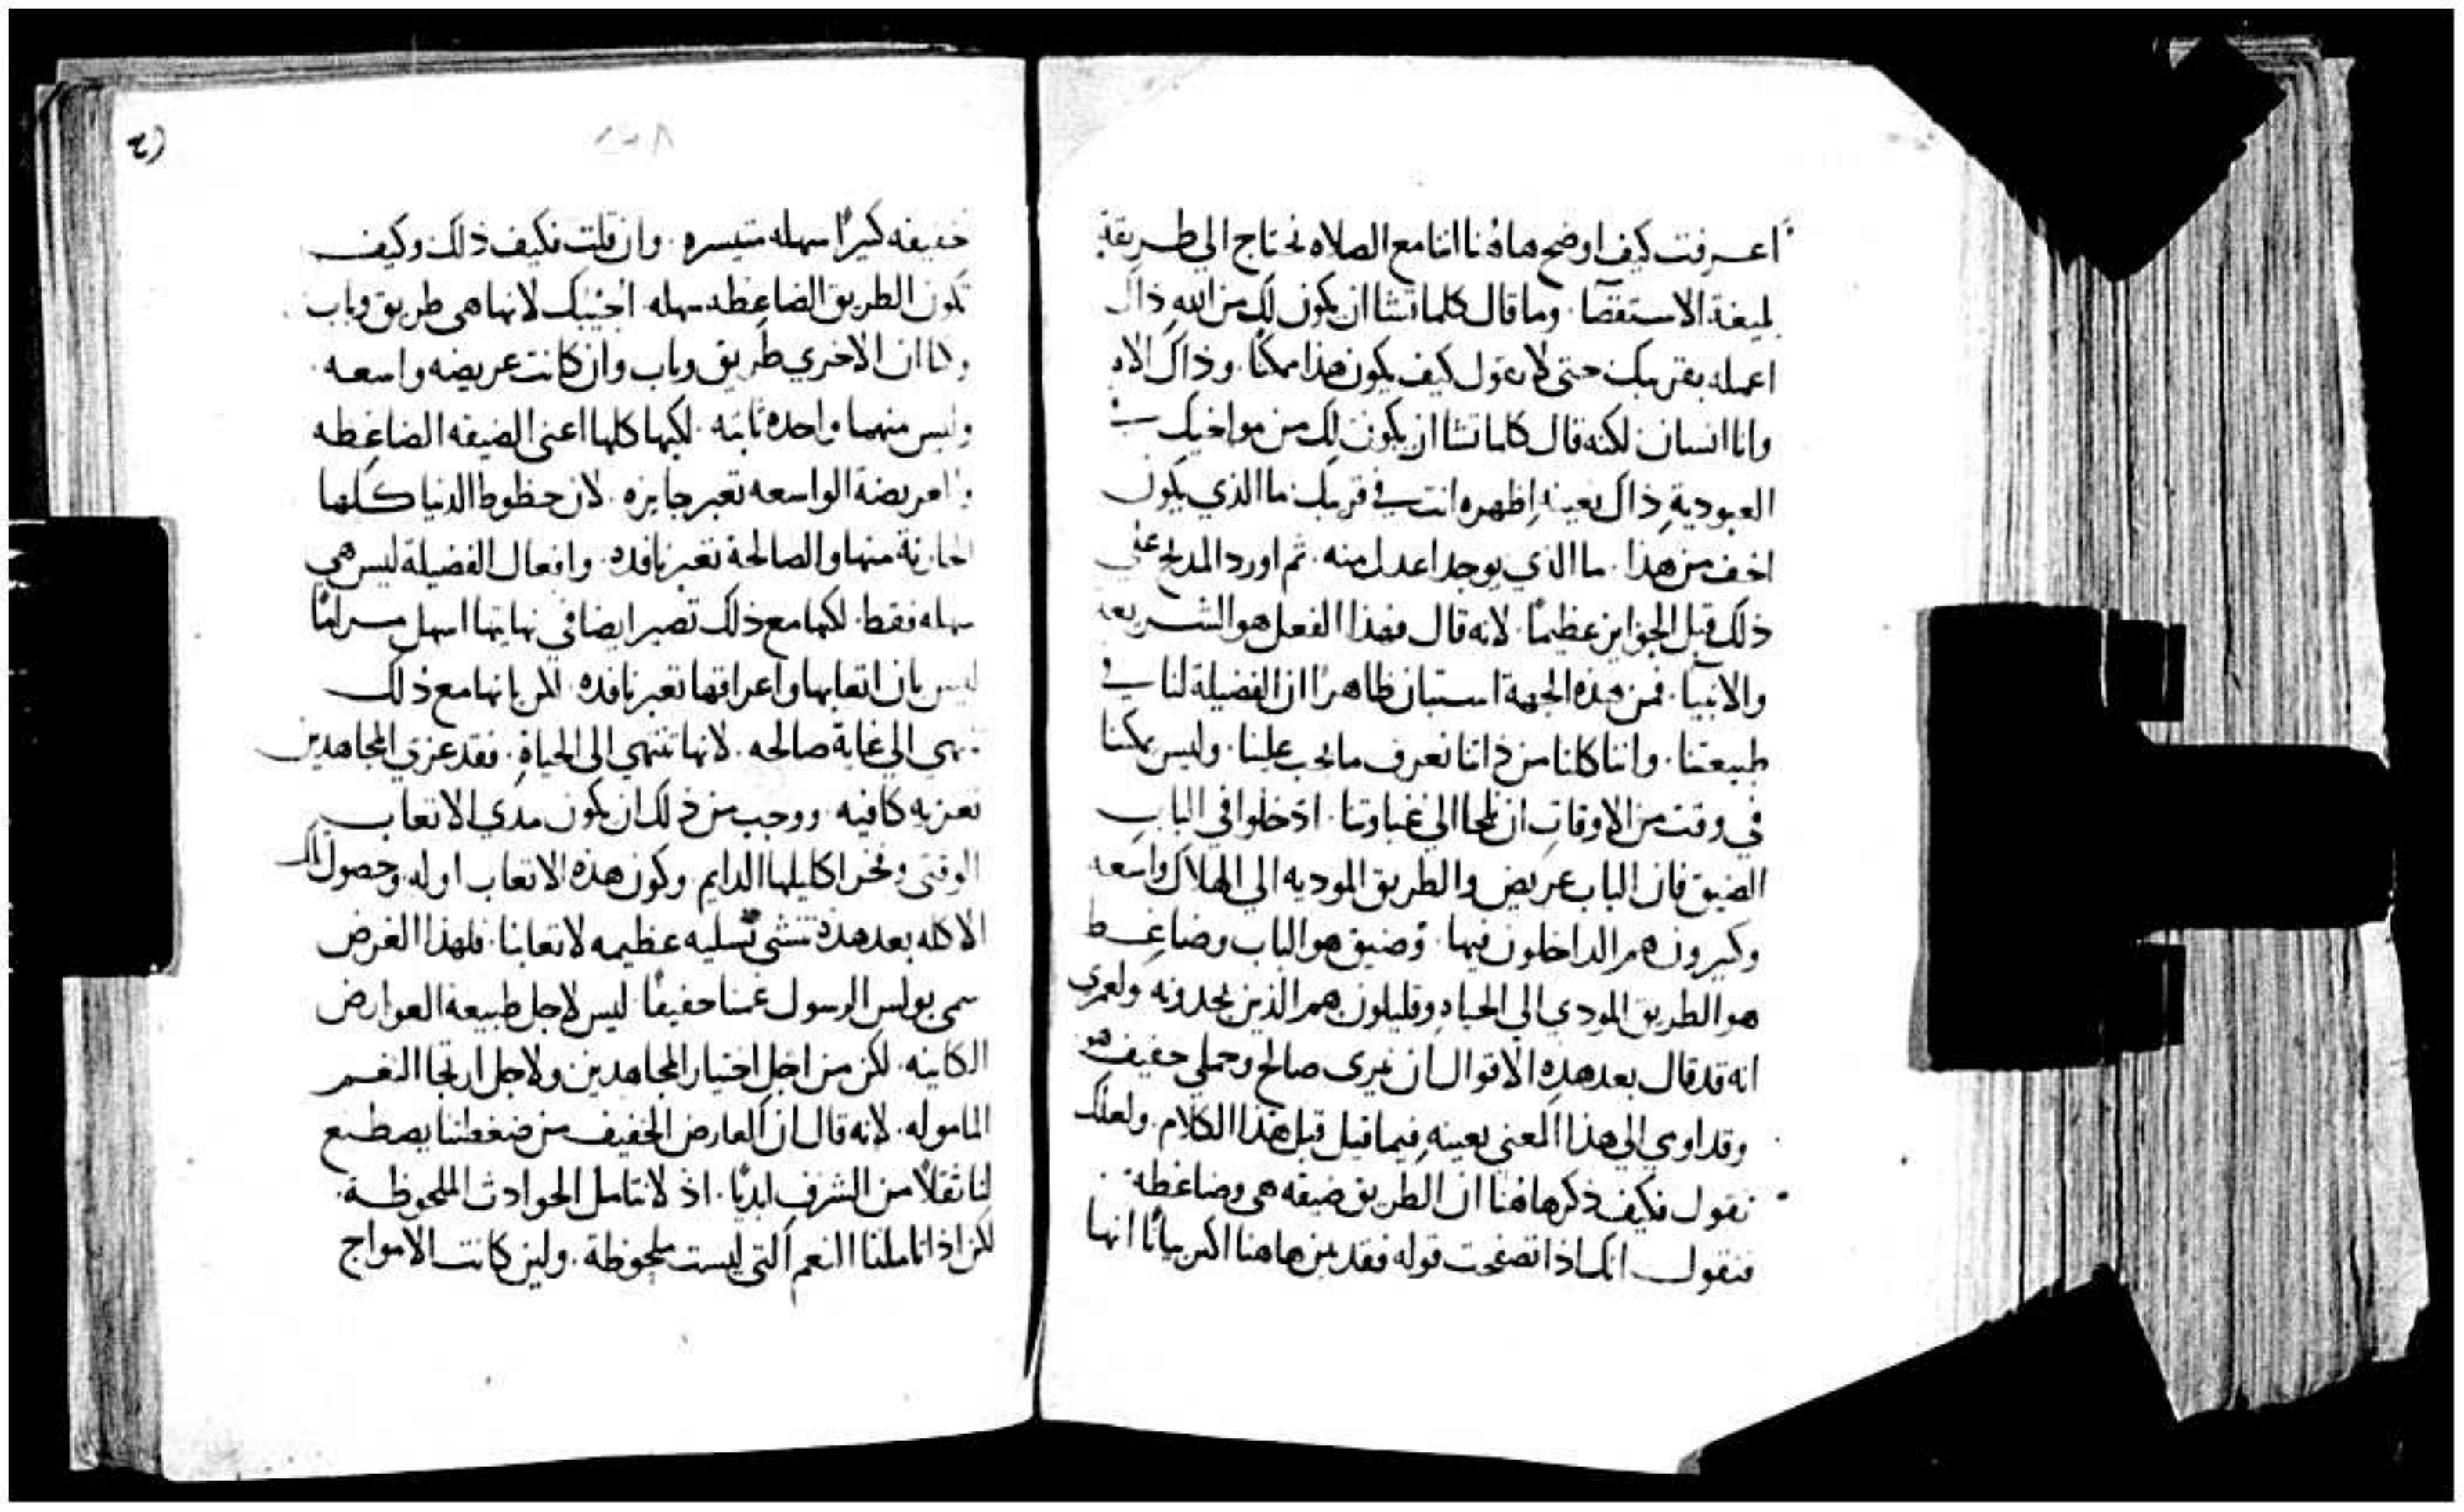 اعرفت كيف اوضح هاهنا اننا مع الصلاه نحتاج الي طريقة
بليغة الاستقصا. وما قال كلما تشا ان يكون لك من الله ذاك
اعمله بقريبك حتى لا تقول كيف يكون هذا ممكنًا. وذاك الاه
وانا انسان لكنه قال كلما تشا ان يكون لك من مواخيك في
العبودية ذاك بعينه اظهره انت في قريبك ما الذي يكون
اخف من هذا. ما الذي يوجد اعدل منه. ثم اورد المديح على
ذلك قبل الجوايز عظيمًا. لانه قال فهذا الفعل هو الشريعه
والانبيا. فمن هذه الجهة استبان ظاهرًا ان الفضيلة لنا في
طبيعتنا. واننا كلنا من ذاتنا نعرف ما يجب علينا. وليس يمكننا
في وقت من الاوقات ان نلجا الي غباوتنا. ادخلوا في الباب
الضيق فان الباب عريض والطريق الموديه الي الهلاك واسعه
وكثيرون هم الداخلون فيها. وضيق هو الباب وضاغط
هو الطريق المودي الي الحياه وقليلون هم الذين يجدونه ولعمري
انه قد قال بعد هذه الاقوال ان نيري صالح وحملي خفيف هو
وقد اومي الي هذا المعني بعينه فيما قيل قبل هذا الكلام. ولعلك
تقول فكيف ذكر هاهنا ان الطريق ضيقه هي وضاغطه.
فنقول انك اذا تصفحت قوله فقد بين هاهنا اكثر بيانًا انها
خفيفه كثيرًا سهله متيسره. وان قلت فكيف ذلك وكيف
تكون الطريق الضاغطه سهله. اجيبك لانها هي طريق وباب
وكما ان الاخري طريق وباب وان كانت عريضه واسعه.
وليس منهما واحده ثابته. لكنها كلها اعني الضيقه الضاغطه
والعريضة الواسعه تعبر جايزه. لان حظوظ الدنيا كلها
المحزنة منها والصالحة تعبر نافذه. وافعال الفضيلة ليس هي
سهله فقط. لكنها مع ذلك تصير ايضا في نهايتها اسهل مرامًا
ليس بان اتعابها واعراقها تعبر نافذه. لكن بانها مع ذلك
تنتهي الي غاية صالحه. لانها تنتهي الي الحياة. فقد عزي المجاهدين
تعزيه كافيه. ووجب من ذلك ان يكون مدي الاتعاب
الوقتي وفخر اكليلها الدايم. وكون هذه الاتعاب اوله وحصول تلك
الاكله بعد هذه تنشي تسليه عظيمه لاتعابنا. فلهذا الغرض
سمى بولس الرسول غمنا خفيفًا. ليس لاجل طبيعة العوارض
الكاينه. لكن من اجل اختيار المجاهدين ولاجل ارتجا النعم
الماموله. لانه قال ان العارض الخفيف من ضغطتنا يصطنع
لنا ثقلاً من الشرف ابديًا. اذ لا نتامل الحوادث الملحوظة.
لكن اذا تاملنا النعم التي ليست ملحوظة. ولين كانت الامواج